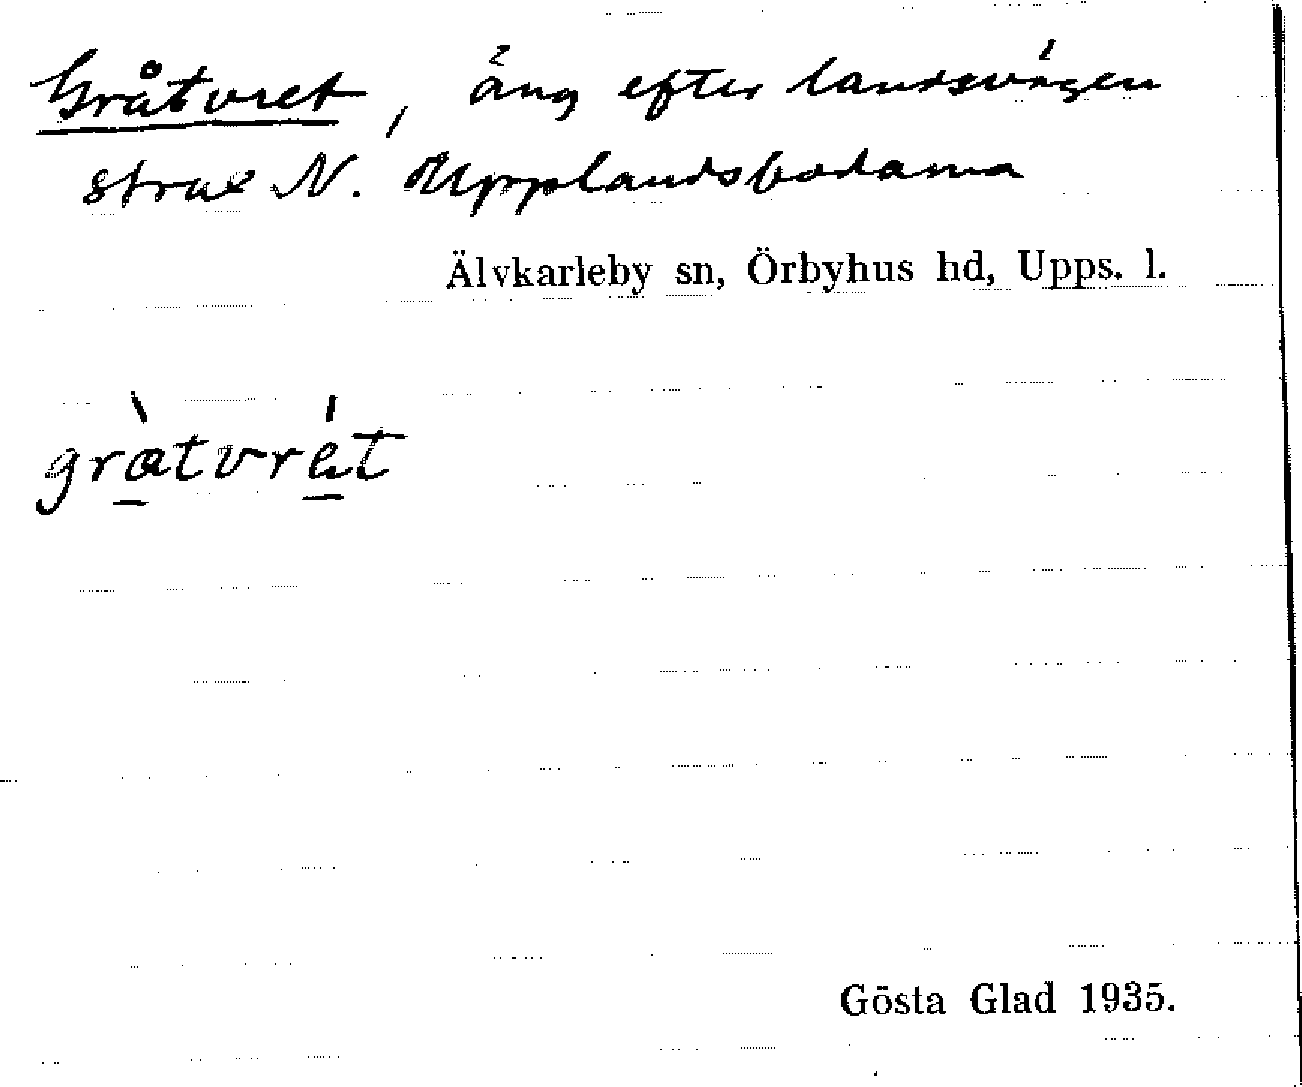 Gråtvret, äng efter landsvägen
strax N. Upplandsbodarna
Älvkarleby sn, Örbyhus hd, Upps. l.
grætvrét
Gösta Glad 1935.